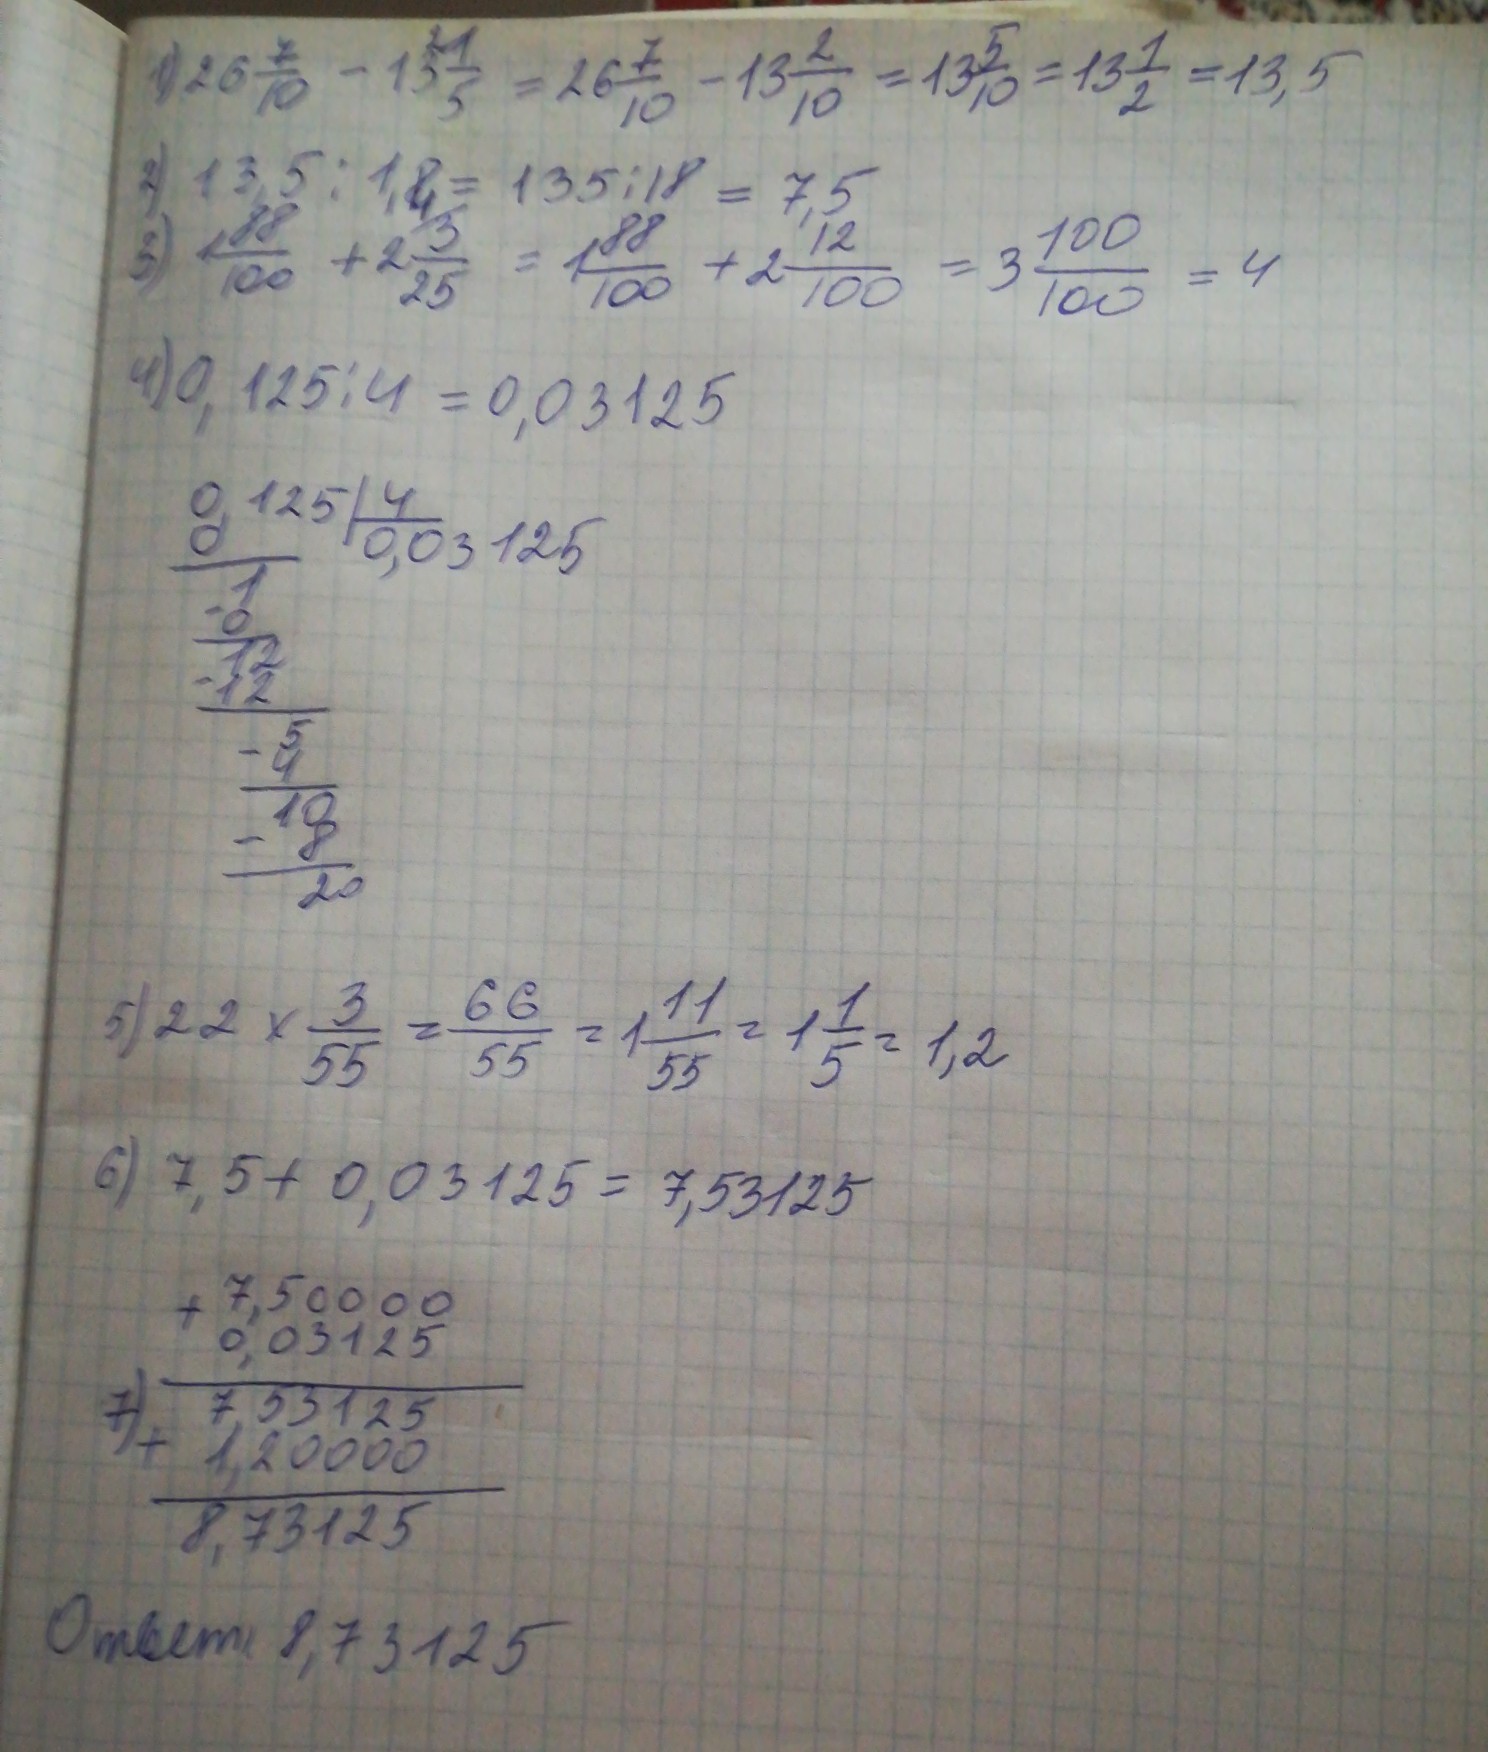 1) 26 7/10 - 13 1/5 = 26 7/10 - 13 2/10 = 13 5/10 = 13 1/2 = 13,5
2) 13,5 : 1,8 = 135 : 18 = 7,5
3) 1 88/100 + 2 3/25 = 1 88/100 + 2 12/100 = 3 100/100 = 4
4) 0,125 : 4 = 0,03125
0,125 | 4
0 0,03125
1
-0
12
-12
5
-4
10
- 8
20
5) 22 × 3/55 = 66/55 = 1 11/55 = 1 1/5 = 1,2
6) 7,5 + 0,03125 = 7,53125
+ 7,50000
0,03125
7) 7,53125
+ 1,20000
8,73125
Ответ: 8,73125